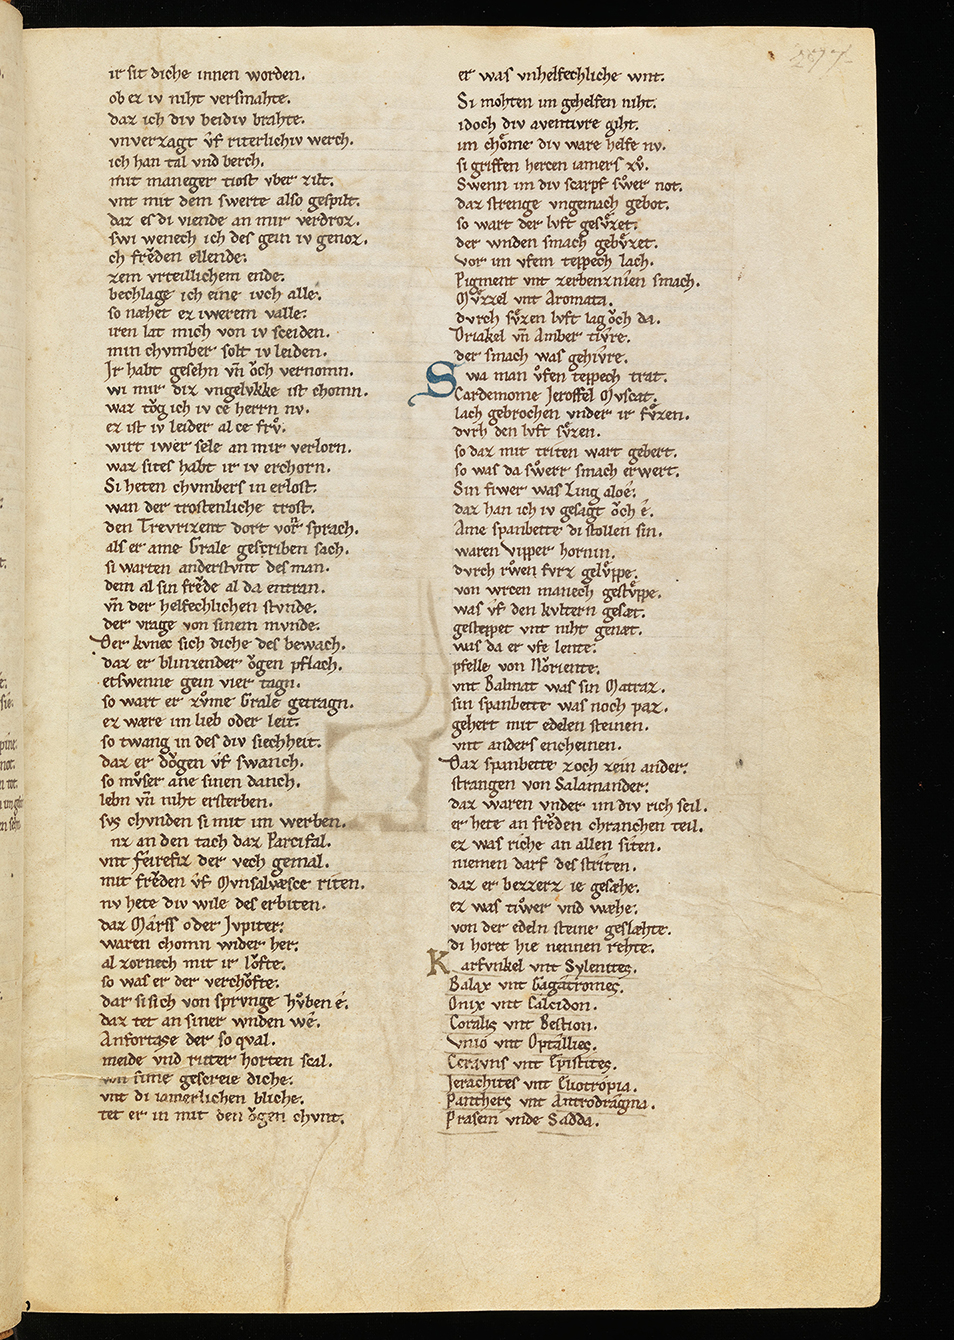 277
ir sit diche innen worden.
ob ez iv niht versmahte.
daz ich div beidiv brahte.
vnverzagt vf riterlichiv werch.
ich han tal vnd berch.
mit maneger tiost vber zilt.
vnt mit dem swerte also gespilt.
daz es di viende an mir verdroz.
swi wenech ich des gein iv genoz.
ch frᵉden ellende.
zem vrteillichem ende.
bechlage ich eine ivch alle.
so næhet ez iwerem valle.
iren lat mich von iv sceiden.
min chvmber solt iv leiden.
Ir habt gesehn vn̄ oͮch vernomn.
wi mir diz vngelvkke ist chomn.
waz toͮg ich iv ce herrn nv.
ez ist iv leider al ce frv̊.
wirt iwer sele an mir verlorn.
waz sites habt ir iv erchorn.
Si heten chvmbers in erlost.
wan der trostenliche trost.
den Trevrizent dort vor sprach.
als er ame Grale gescriben sach.
si warten anderstvnt des man.
dem al sin frᵉde al da entran.
vn̄ der helfechlichen stvnde.
der vrage von sinem mvnde.
Der kvnec sich diche des bewach.
daz er blinzender oͮgen pflach.
etswenne gein vier tagn.
so wart er zv̊me Grale getragn.
ez wære im lieb oder leit.
so twang in des div siechheit.
daz er doͮgen vf swanch.
so mv̊ser ane sinen danch.
lebn vn̄ niht ersterben.
svs chvnden si mit im werben.
nz an den tach daz Parcifal.
vnt feirefiz der vech gemal.
mit frᵉden vf Mvnsalvæsce riten.
nv hete div wile des erbiten.
daz Marss oder Jvpiter.
waren chomn wider her.
al zornech mit ir loͮfte.
so was er der verchoͮfte.
dar si sich von sprvnge hv̊ben é.
daz tet an siner wnden we.
Anfortase der so qval.
meide vnd ritter horten scal.
von sime gescreie diche.
vnt di iamerlichen bliche.
tet er in mit den oͮgen chvnt.
er was vnhelfechliche wnt.
Si mohten im gehelfen niht.
idoch div aventivre giht.
im choͤme div ware helfe nv.
si griffen hercen iamers zv̊.
Swenn im div scarpf sv̊wer not.
daz strenge vngemach gebot.
so wart der lvft gesv̊zet.
der wnden smach gebv̊zet.
vor im vfem teppech lach.
Pigment vnt zerbenznien smach.
Mv̊zzel vnt Aromata.
dvrch sv̊zen lvft lag oͮch da.
Driakel vn̄ Amber tivre.
der smach was gehivre.
Swa man vfen teppech trat.
Cardemome Jeroffel Mvscat.
lach gebrochen vnder ir fv̊zen.
dvrh den lvft sv̊zen.
so daz mit triten wart gebert.
so was da sv̊err smach erwert.
Sin fiwer was Ling aloe.
daz han ich iv gesagt oͮch é.
Ame spanbette di stollen sin.
waren vipper hornin.
dvrch rv̊wen fvrz gelv̊ppe.
von wrcen manech gestv̊ppe.
was vf den kvltern gesæt.
gesteppet vnt niht genæt.
was da er vfe lente.
pfelle von Noͮriente.
vnt Palmat was sin Matraz.
sin spanbette was noch paz.
gehert mit edelen steinen.
vnt anders encheinen.
Daz spanbette zoch zein ander.
strangen von Salamander.
daz waren vnder im div rich seil.
er hete an frᵉden chranchen teil.
ez was riche an allen siten.
niemen darf des striten.
daz er bezzerz ie gesæhe.
ez was tiv̊er vnd wæhe.
von der edeln steine geslæhte.
di horet hie nennen rehte.
Karfvnkel vnt Sylenites.
Balax vnt Gagatromes.
Onix vnt Calcidon.
Coralis vnt Bestion.
Vnio vnt Optallies.
Ceravns vnt Epistites.
Jerachites vnt Eliotropia.
Panthers vnt Antrodragma.
Prasem vnde Sadda.